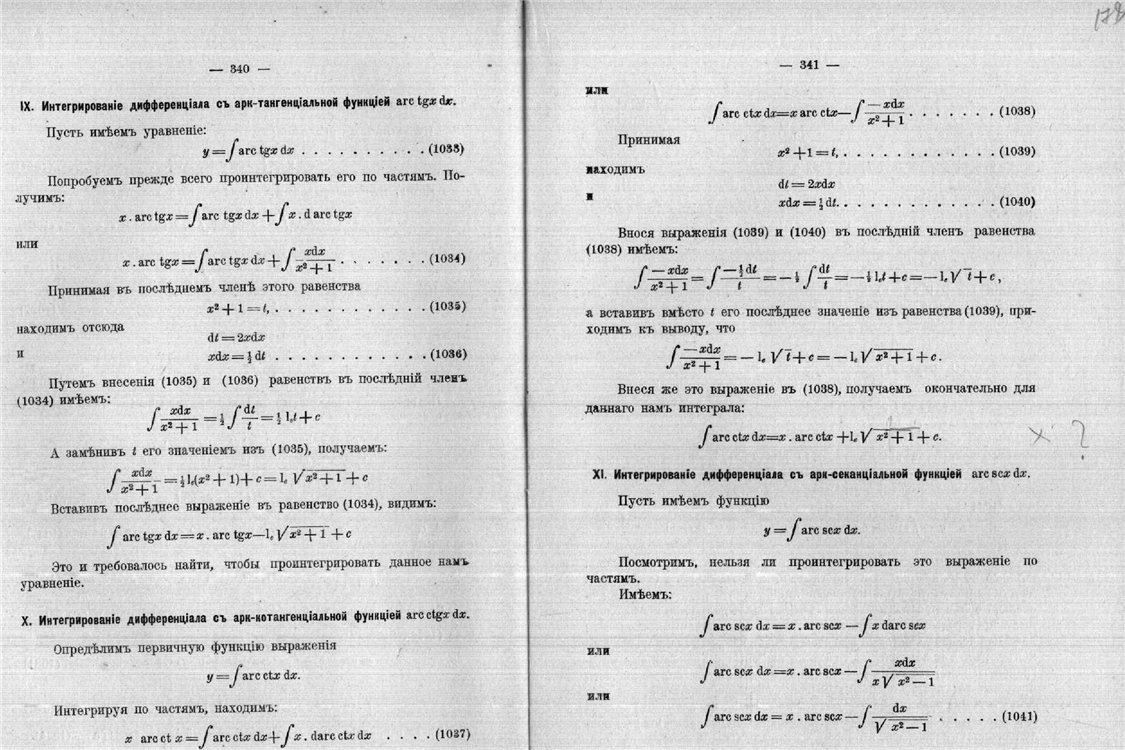 — 340 —
IX. Интегрированіе дифференціала съ арк-тангенціальной функціей arc tgx dx.
Пусть имѣемъ уравненіе:
y = ∫ arc tgx dx . . . . . . . . . . (1033)
Попробуемъ прежде всего проинтегрировать его по частямъ. По-
лучимъ:
x . arc tgx = ∫ arc tgx dx + ∫ x . d arc tgx
или
x . arc tgx = ∫ arc tgx dx + ∫ xdx / x² + 1 . . . . . . . (1034)
Принимая въ послѣднемъ членѣ этого равенства
x² + 1 = t, . . . . . . . . . . . . (1035)
находимъ отсюда
dt = 2xdx
и
xdx = ½ dt . . . . . . . . . . . . (1036)
Путемъ внесенія (1035) и (1036) равенствъ въ послѣдній членъ
(1034) имѣемъ:
∫ xdx / x² + 1 = ½ ∫ dt / t = ½ lₑt + c
А замѣнивъ t его значеніемъ изъ (1035), получаемъ:
∫ xdx / x² + 1 = ½ lₑ(x² + 1) + c = lₑ √x² + 1 + c
Вставивъ послѣднее выраженіе въ равенство (1034), видимъ:
∫ arc tgx dx = x . arc tgx — lₑ √x² + 1 + c
Это и требовалось найти, чтобы проинтегрировать данное намъ
уравненіе.
X. Интегрированіе дифференціала съ арк-котангенціальной функціей arc ctgx dx.
Опредѣлимъ первичную функцію выраженія
y = ∫ arc ctx dx.
Интегрируя по частямъ, находимъ:
x arc ct x = ∫ arc ctx dx + ∫ x . darc ctx dx . . . . (1037)
— 341 —
или
∫ arc ctx dx = x arc ctx — ∫ — xdx / x² + 1 . . . . . . . (1038)
Принимая
x² + 1 = t, . . . . . . . . . . . . . (1039)
находимъ
dt = 2xdx
и
xdx = ½ dt. . . . . . . . . . . . . (1040)
Внося выраженія (1039) и (1040) въ послѣдній членъ равенства
(1038) имѣемъ:
∫ — xdx / x² + 1 = ∫ — ½ dt / t = — ½ ∫ dt / t = — ½ lₑt + c = — lₑ √t + c ,
а вставивъ вмѣсто t его послѣднее значеніе изъ равенства (1039), при-
ходимъ къ выводу, что
∫ — xdx / x² + 1 = — lₑ √t + c = — lₑ √x² + 1 + c.
Внеся же это выраженіе въ (1038), получаемъ окончательно для
даннаго намъ интеграла:
∫ arc ctx dx = x . arc ctx + lₑ √x² + 1 + c.
x ?
XI. Интегрированіе дифференціала съ арк-секанціальной функціей arc scx dx.
Пусть имѣемъ функцію
y = ∫ arc scx dx.
Посмотримъ, нельзя ли проинтегрировать это выраженіе по
частямъ.
Имѣемъ:
∫ arc scx dx = x . arc scx — ∫ x darc scx
или
∫ arc scx dx = x . arc scx — ∫ xdx / x √x² — 1
или
∫ arc scx dx = x . arc scx — ∫ dx / √x² — 1 . . . . . (1041)